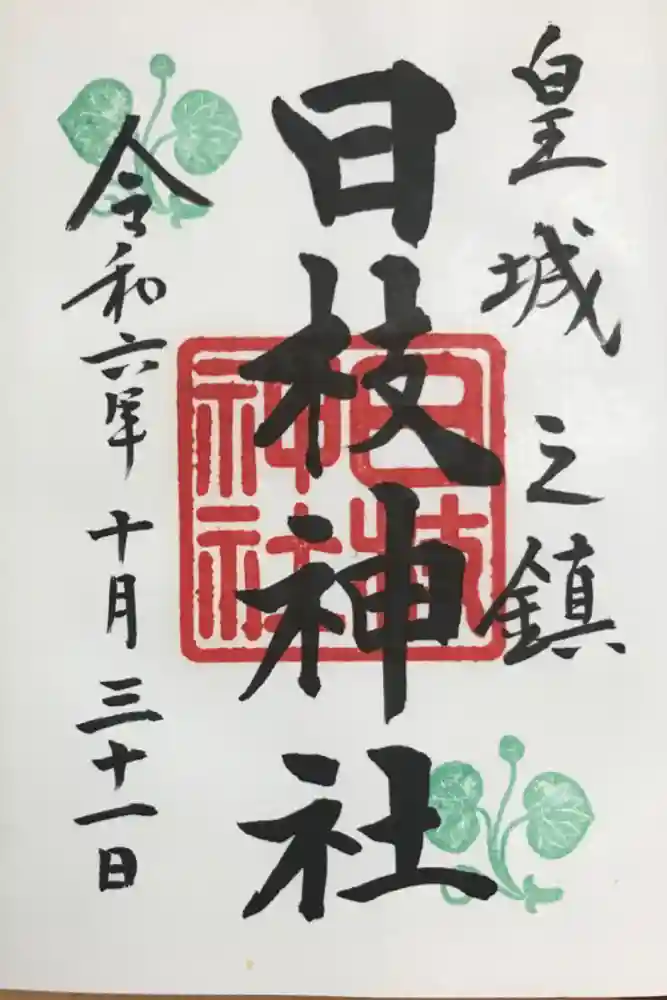 皇城之鎮
日枝神社
日枝神社
令和六年十月三十一日